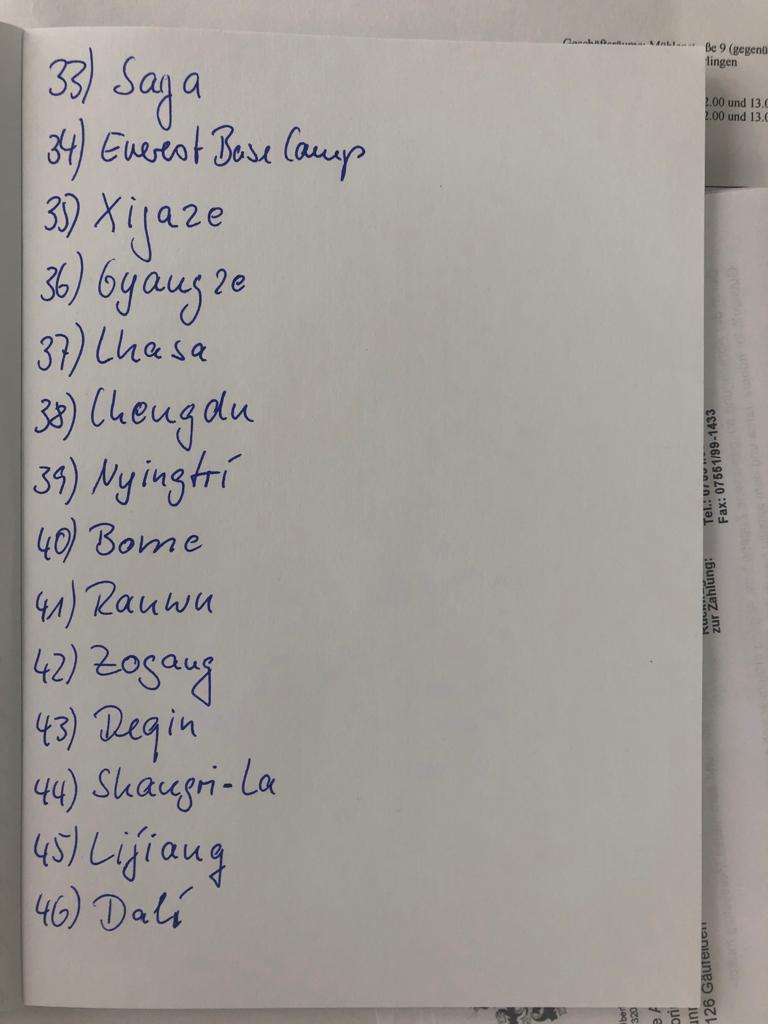 33) Saga
34) Everest Base Camp
35) Xijaze
36) Gyangze
37) Lhasa
38) Chengdu
39) Nyingtri
40) Bome
41) Rauwu
42) Zogang
43) Deqin
44) Shangri-La
45) Lijiang
46) Dali
ße 9 (gegenü
lingen
2.00 und 13.0
2.00 und 13.0
Fax: 07551/99-1433
zur Zahlung:
126 Gäufelden